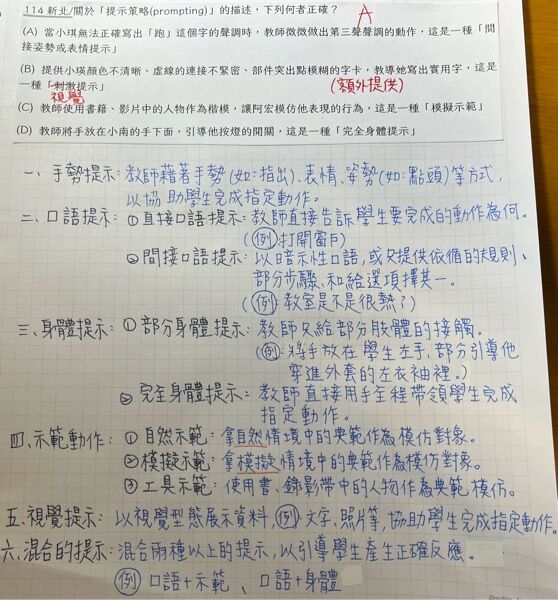 114 新北/關於「提示策略(prompting)」的描述，下列何者正確？ A
(A) 當小琪無法正確寫出「跑」這個字的聲調時，教師微微做出第三聲聲調的動作，這是一種「間
接姿勢或表情提示」
(B) 提供小瑛顏色不清晰、虛線的連接不緊密、部件突出點模糊的字卡，教導她寫出實用字，這是
一種「刺激提示」 (額外提供)
視覺
(C) 教師使用書籍、影片中的人物作為楷模，讓阿宏模仿他表現的行為，這是一種「模擬示範」
(D) 教師將手放在小南的手下面，引導他按燈的開關，這是一種「完全身體提示」
一、手勢提示：教師藉著手勢(如：指出)、表情、姿勢(如：點頭)等方式，
以協助學生完成指定動作。
二、口語提示：①直接口語提示：教師直接告訴學生要完成的動作為何。
(例：打開窗戶)
②間接口語提示：以暗示性口語，或只提供依循的規則、
部分步驟、和給選項擇其一。
(例：教室是不是很熱？)
三、身體提示：①部分身體提示：教師只給部分肢體的接觸。
(例：將手放在學生左手，部分引導他
穿進外套的左衣袖裡。)
②完全身體提示：教師直接用手全程帶領學生完成
指定動作。
四、示範動作：①自然示範：拿自然情境中的典範作為模仿對象。
②模擬示範：拿模擬情境中的典範作為模仿對象。
③工具示範：使用書、錄影帶中的人物作為典範模仿。
五、視覺提示：以視覺型態展示資料，例：文字、照片等，協助學生完成指定動作。
六、混合的提示：混合兩種以上的提示，以引導學生產生正確反應。
例 口語+示範、口語+身體